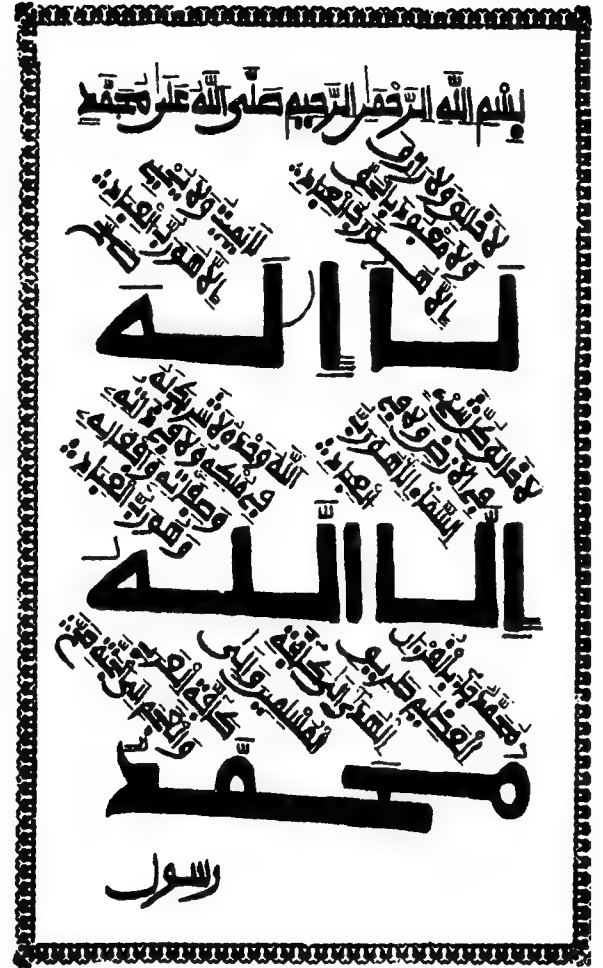 بِسْمِ اللَّهِ الرَّحْمَٰنِ الرَّحِيمِ صَلَّى اللَّهُ عَلَىٰ مُحَمَّدٍ
لا خالق ولا رازق
ولا معبود بالحق
إلا هو رب العباد
لا يميت ولا يحيي
إلا هو رب العباد
لا إله
في الأرض ولا في
السماء إلا هو رب
العباد
الله وحده لا شريك له
في ملكه ولا في ذاته
وصفاته وأفعاله
وهو رب العباد
إلا الله
محمد جاء بالقرآن
العظيم طريق
الهدى إلى كافة
المسلمين وإلى
كافة العرب
محمد
رسول